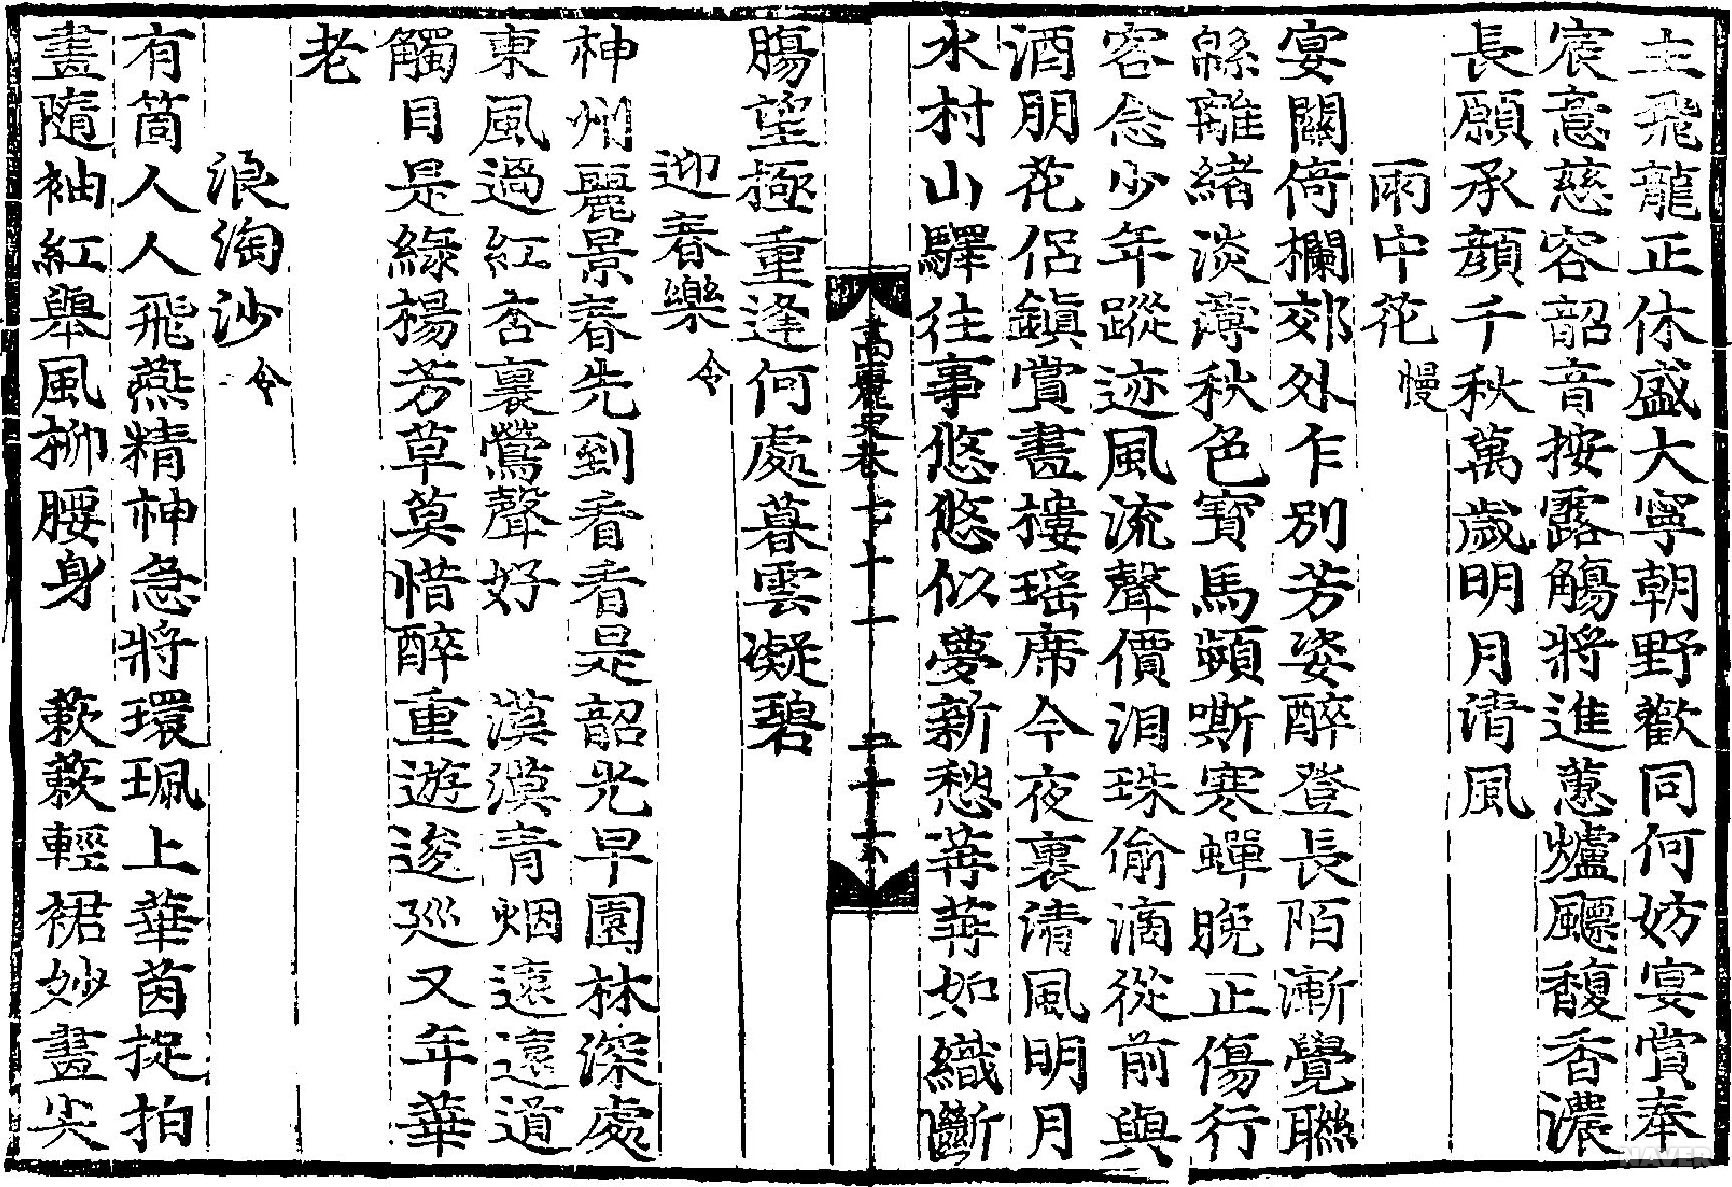 主飛龍正休盛大寧朝野歡同何妨宴賞奉
宸意慈容韶音按露觴將進蕙爐飃馥香濃
長願承顔千秋萬歲明月清風
雨中花慢
宴闕倚欄郊外乍別芳姿醉登長陌漸覺聮
緜離緒淡薄秋色寶馬頻嘶寒蟬晚正傷行
客念少年蹤迹風流聲價淚珠偷滴從前與
酒朋花侶鎮賞畫樓瑤席今夜裏清風明月
水村山驛往事悠悠似夢新愁苒苒如織斷
高麗史卷七十一 二十六
膓望極重逢何處暮雲凝碧
迎春樂令
神州麗景春先到看看是韶光早園林深處
東風過紅杏裏鶯聲好 漠漠青烟遠遠道
觸目是綠楊芳草莫惜醉重遊逡巡又年華
老
浪淘沙令
有箇人人飛燕精神急將環珮上華茵捉拍
盡隨袖紅舉風柳腰身 蔌蔌輕裙妙盡尖
NAVER